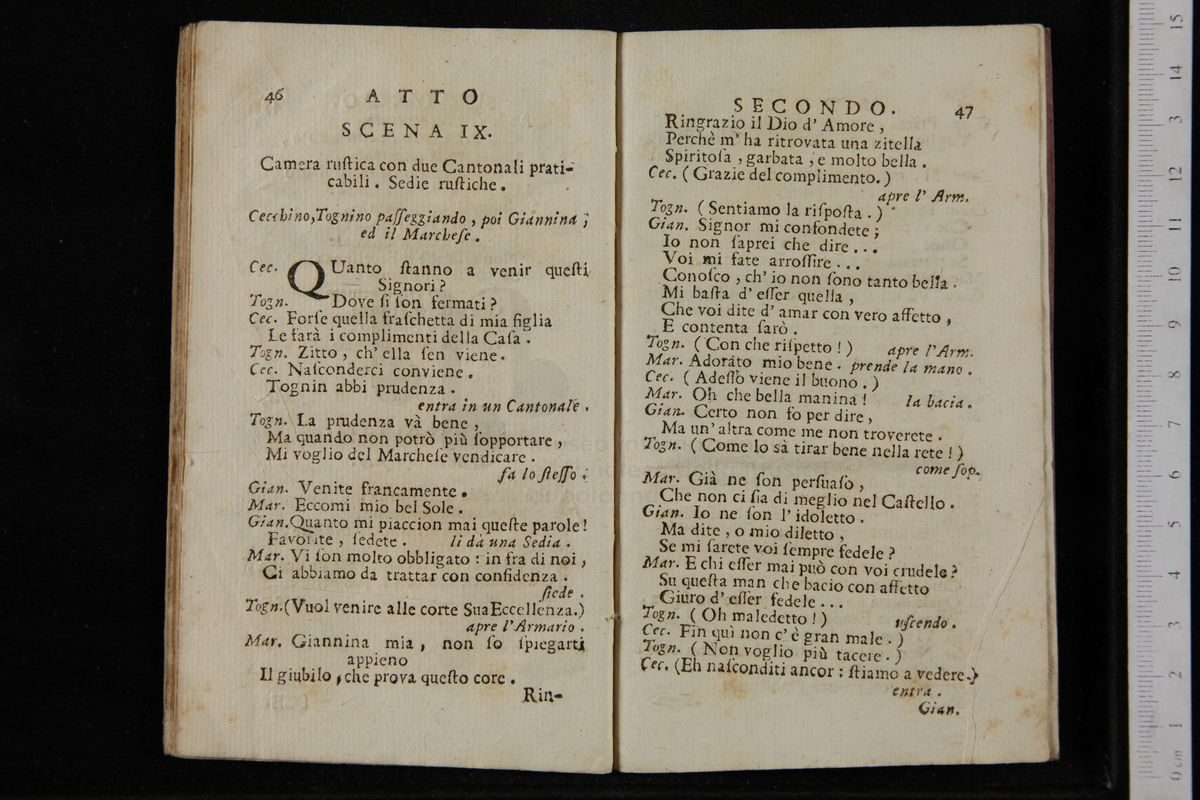 46 ATTO
SCENA IX.
Camera ruſtica con due Cantonali prati-
cabili. Sedie ruſtiche.
Cecchino, Tognino paſſeggiando, poi Giannina;
ed il Marcheſe.
Cec. QUanto ſtanno a venir queſti
Signori?
Togn. Dove ſi ſon fermati?
Cec. Forſe quella fraſchetta di mia figlia
Le farà i complimenti della Caſa.
Togn. Zitto, ch' ella ſen viene.
Cec. Naſconderci conviene.
Tognin abbi prudenza.
entra in un Cantonale.
Togn. La prudenza và bene,
Ma quando non potrò più ſopportare,
Mi voglio del Marcheſe vendicare.
fa lo ſteſſo.
Gian. Venite francamente.
Mar. Eccomi mio bel Sole.
Gian. Quanto mi piaccion mai queſte parole!
Favorite, ſedete. li dà una Sedia.
Mar. Vi ſon molto obbligato: in fra di noi,
Ci abbiamo da trattar con confidenza.
ſiede.
Togn. (Vuol venire alle corte Sua Eccellenza.)
apre l'Armario.
Mar. Giannina mia, non ſo ſpiegarti
appieno
Il giubilo, che prova queſto core.
Rin-
SECONDO. 47
Ringrazio il Dio d' Amore,
Perchè m' ha ritrovata una zitella
Spiritoſa, garbata, e molto bella.
Cec. (Grazie del complimento.)
apre l' Arm.
Togn. (Sentiamo la riſpoſta.)
Gian. Signor mi confondete;
Io non ſaprei che dire...
Voi mi fate arroſſire...
Conoſco, ch' io non ſono tanto bella.
Mi baſta d' eſſer quella,
Che voi dite d' amar con vero affetto,
E contenta ſarò.
Togn. (Con che riſpetto!) apre l'Arm.
Mar. Adorato mio bene. prende la mano.
Cec. (Adeſſo viene il buono.)
Mar. Oh che bella manina! la bacia.
Gian. Certo non fo per dire,
Ma un' altra come me non troverete.
Togn. (Come lo sà tirar bene nella rete!)
come ſop.
Mar. Già ne ſon perſuaſo,
Che non ci ſia di meglio nel Caſtello.
Gian. Io ne ſon l' idoletto.
Ma dite, o mio diletto,
Se mi ſarete voi ſempre fedele?
Mar. E chi eſſer mai può con voi crudele?
Su queſta man che bacio con affetto
Giuro d' eſſer fedele...
Togn. (Oh maledetto!) uſcendo.
Cec. Fin quì non c' è gran male.)
Togn. (Non voglio più tacere.)
Cec. (Eh naſconditi ancor: ſtiamo a vedere.)
entra.
Gian.
15
14
13
12
11
10
9
8
7
6
5
4
3
2
1
0 cm